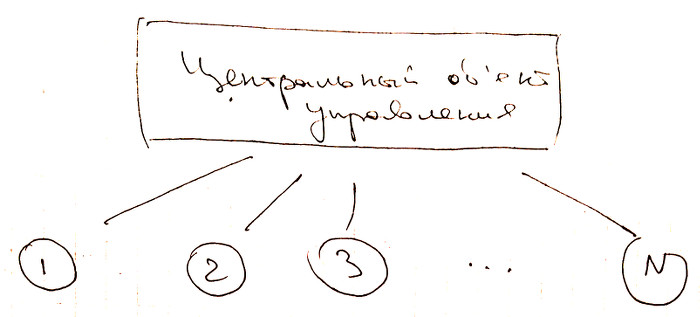 Центральный об'ект
управления
1 2 3 ... N